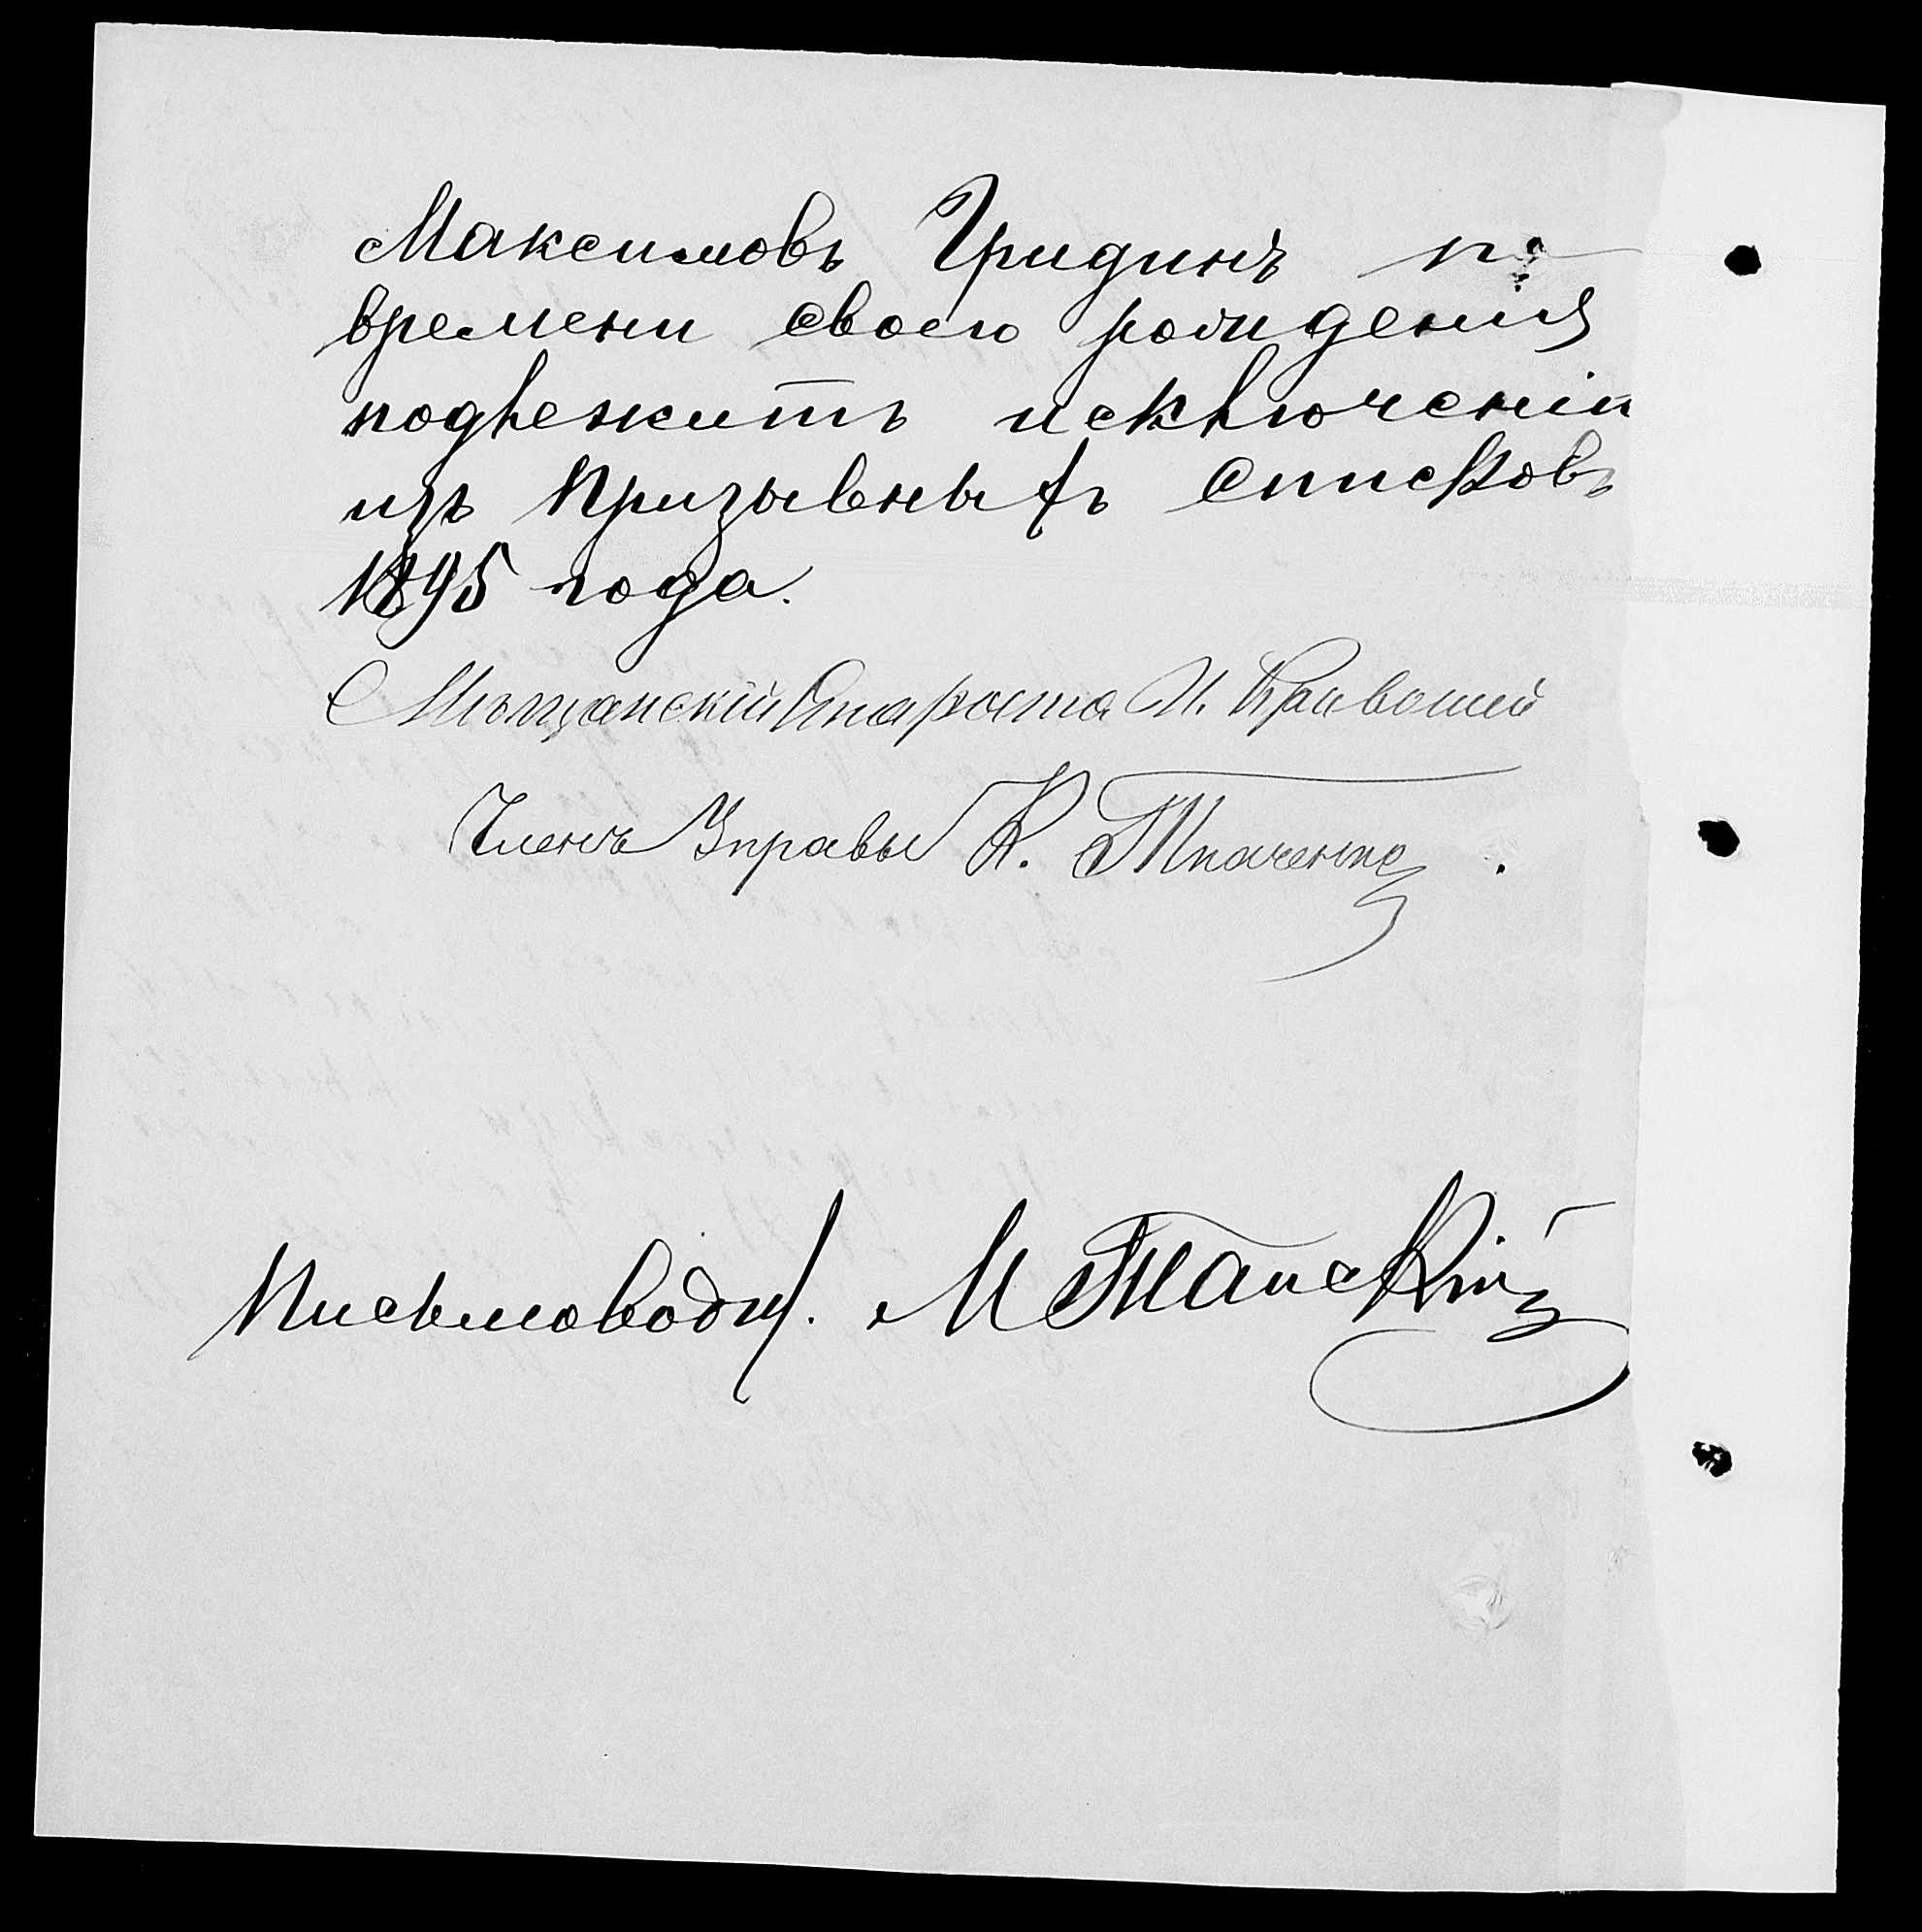 Максимовъ Гридинъ по
времени своего рожденія
подлежитъ исключенію
изъ призывныхъ списковъ
1895 года.
Мѣщанскій Староста И. Кривошей
Членъ Управы К. Ткаченко.
Письмовод. М Танскій